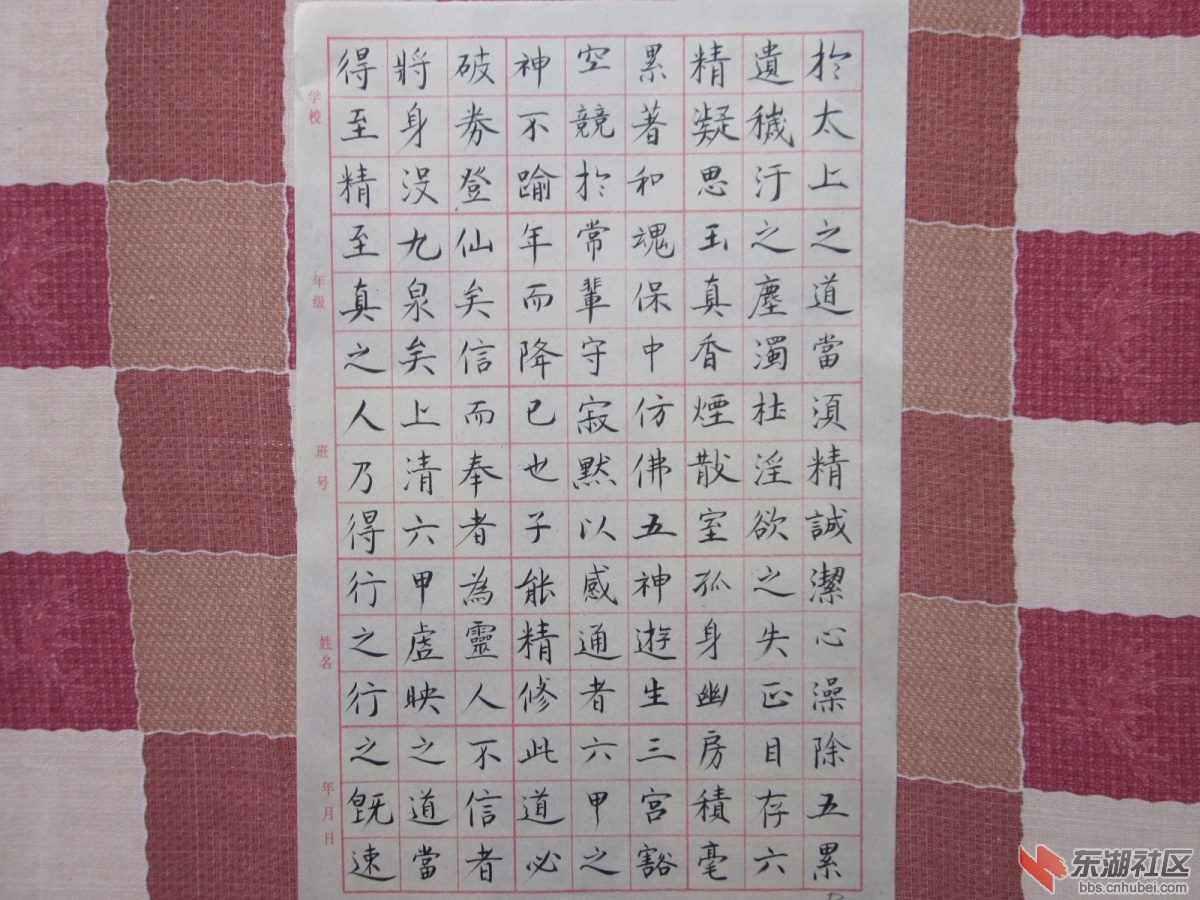 於太上之道當須精誠潔心澡除五累
遺穢汙之塵濁杜淫欲之失正目存六
精凝思玉真香煙散室孤身幽房積毫
累著和魂保中仿佛五神遊生三宮豁
空競於常輩守寂默以感通者六甲之
神不踰年而降已也子能精修此道必
破券登仙矣信而奉者為靈人不信者
將身沒九泉矣上清六甲虛映之道當
得至精至真之人乃得行之行之既速
学校
年级
班号
姓名
年月日
东湖社区
bbs.cnhubei.com